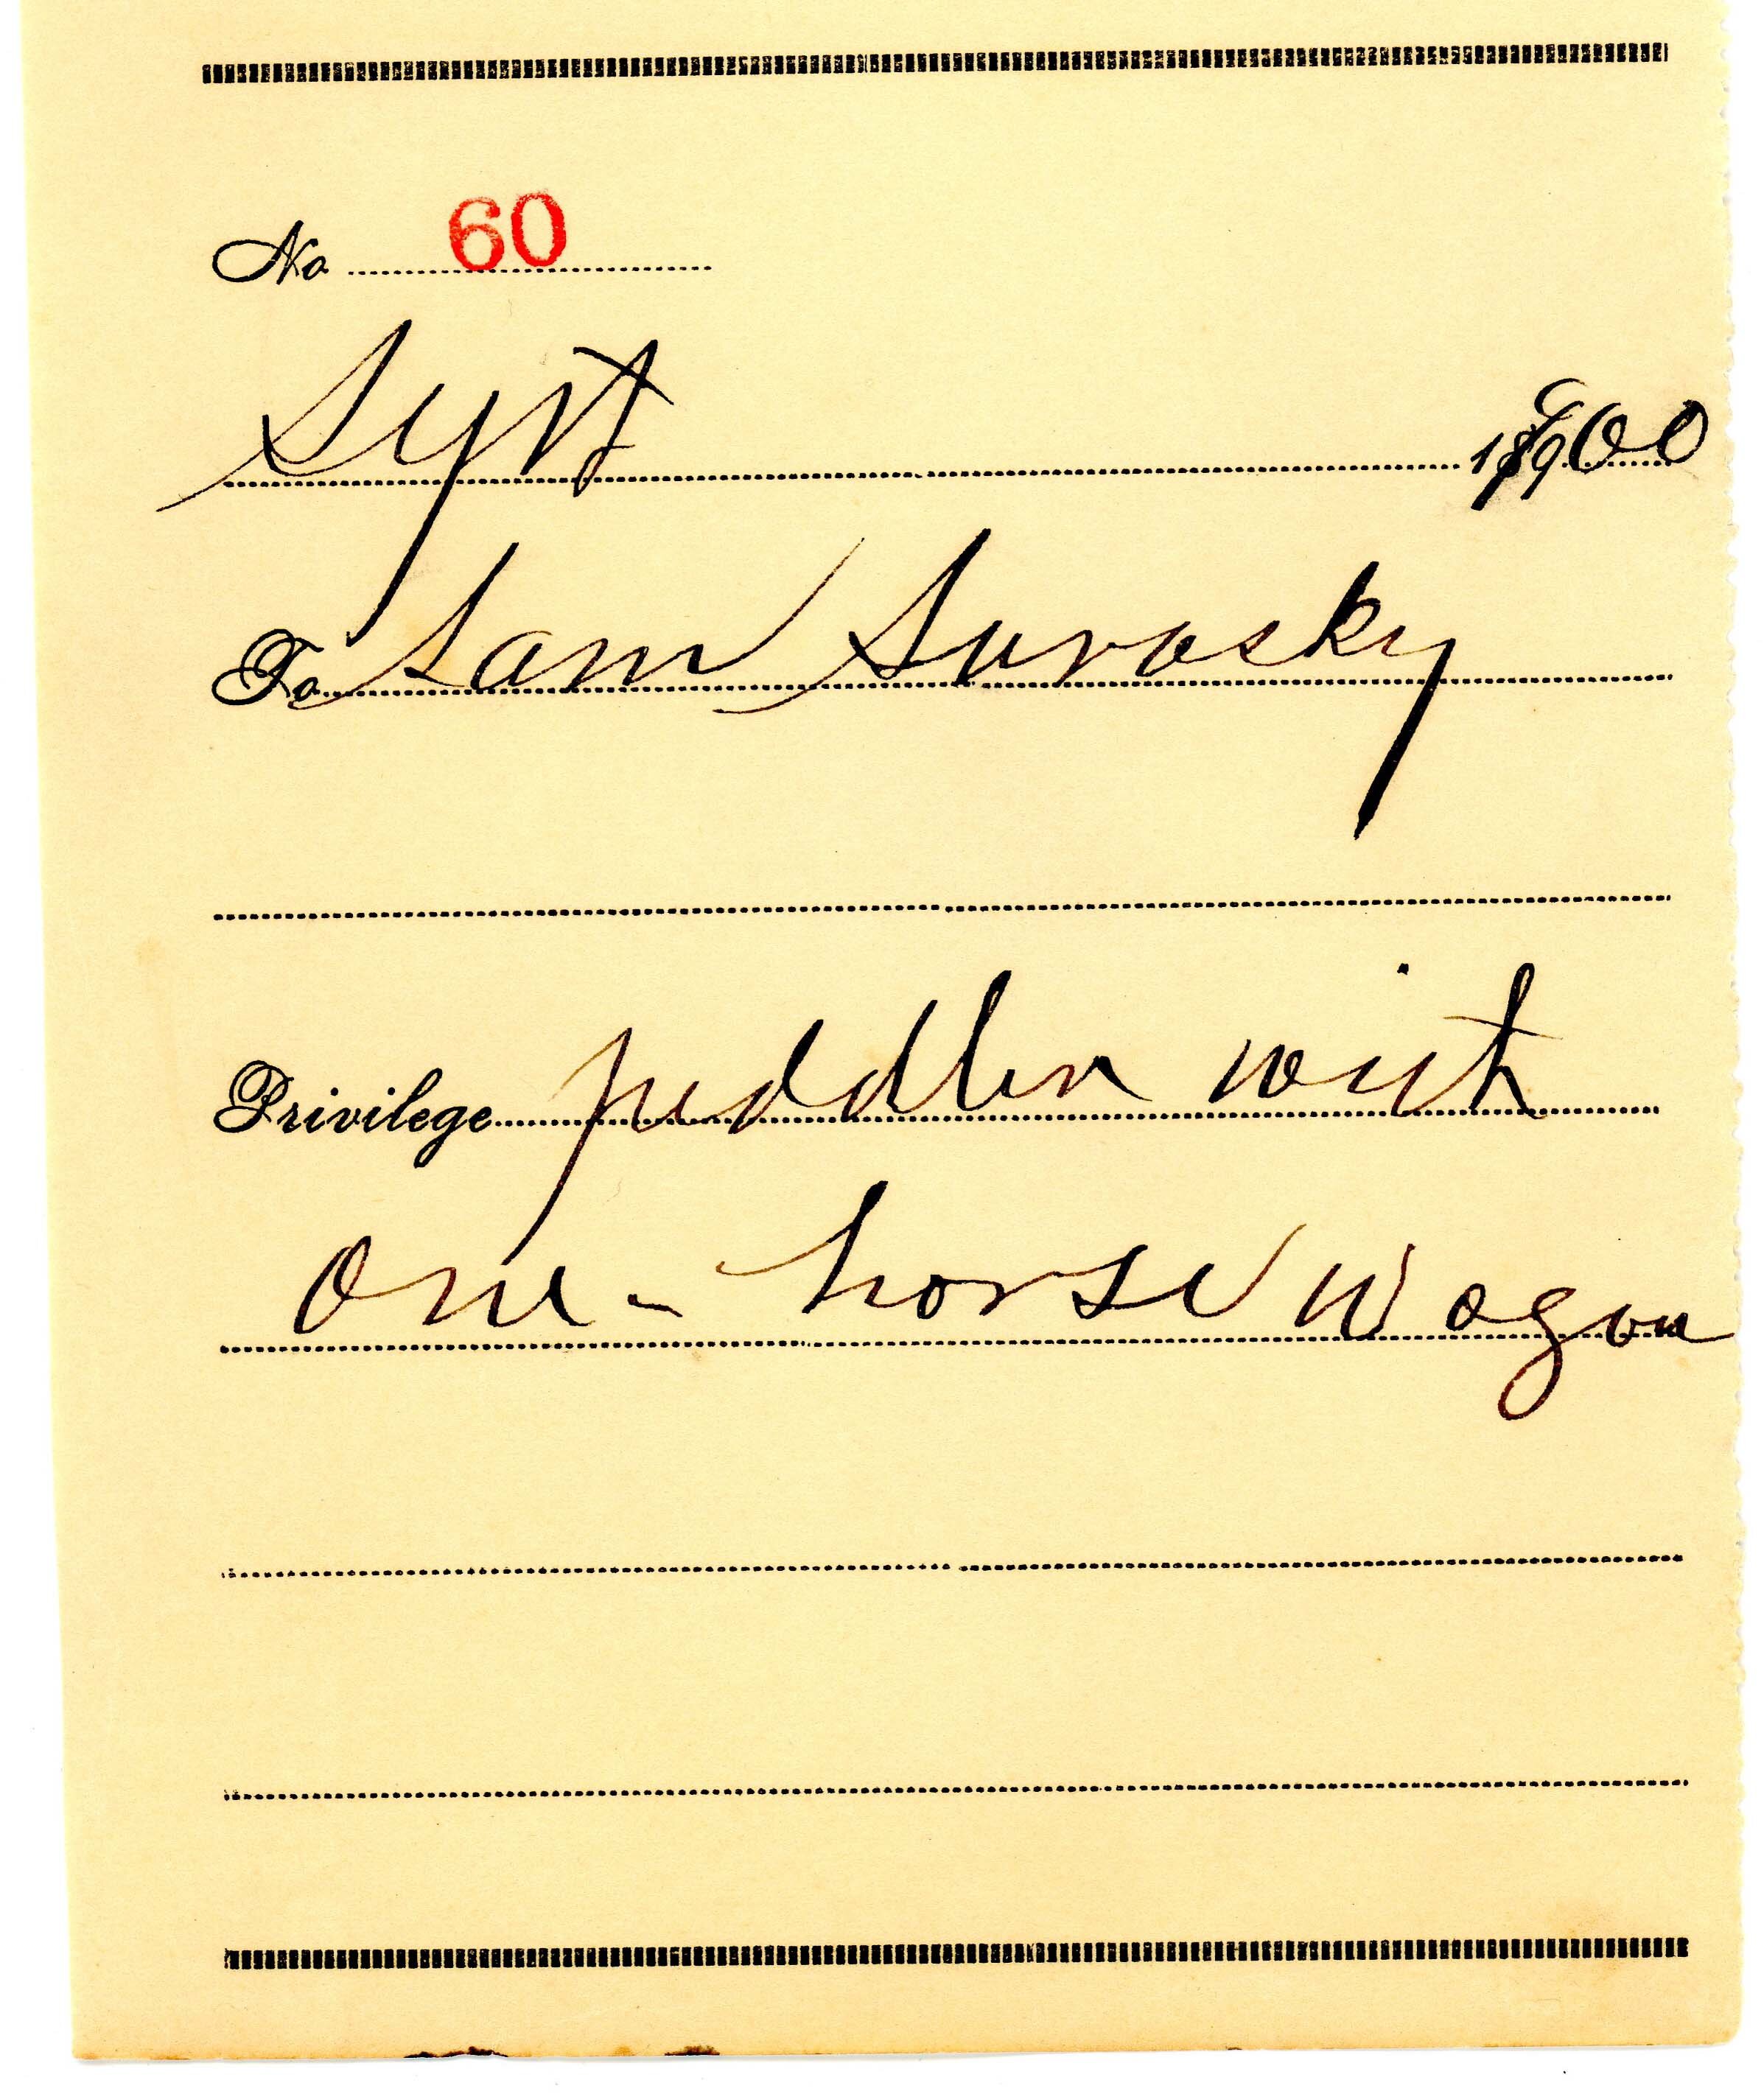 No 60
Sept 1900
To Sam Surasky
Privilege peddler with
one-horse wagon